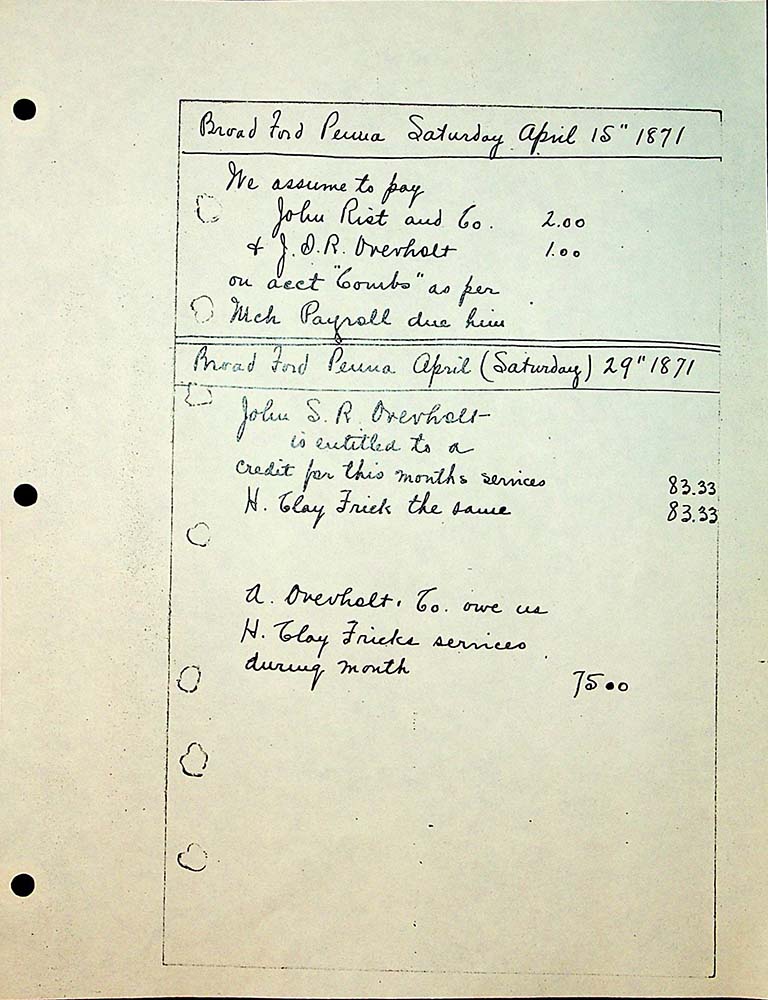 Broad Ford Penna Saturday April 15" 1871
We assume to pay
John Rist and Co. 2.00
& J.S.R. Overholt 1.00
on acct "Combs" as per
Mch Payroll due him
Broad Ford Penna April (Saturday) 29" 1871
John S. R. Overholt
is entitled to a
credit for this months services 83.33
H. Clay Frick the same 83.33
A. Overholt. Co. owe us
H. Clay Fricks services
during month
75.00